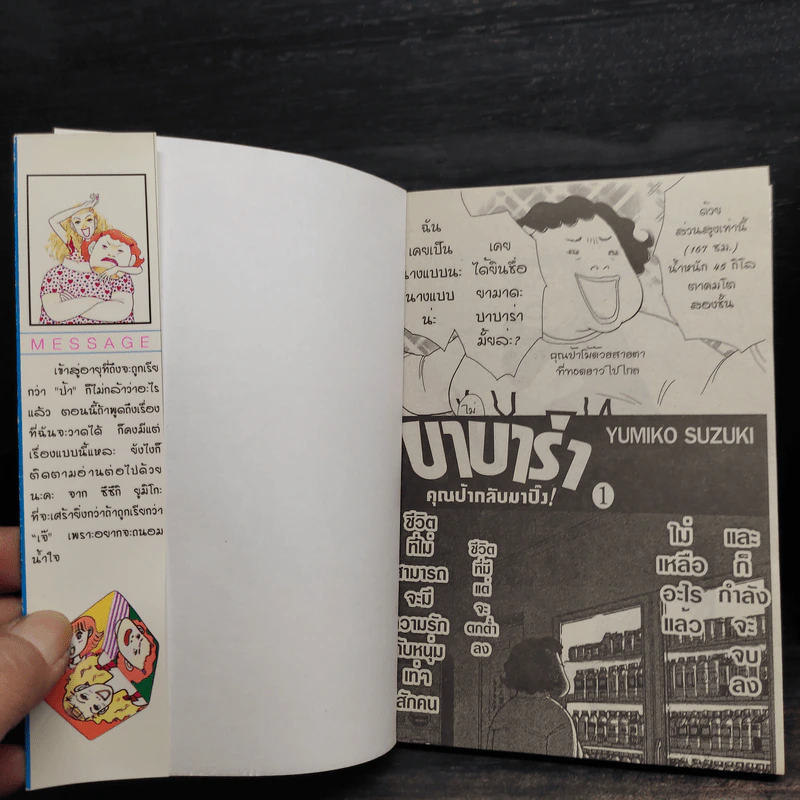 MESSAGE
เข้าสู่อายุที่ถึงจะถูกเรีย
กว่า "ป้า" ก็ไม่กล้าว่าอะไร
แล้ว ตอนนี้ถ้าพูดถึงเรื่อง
ที่ฉันจะวาดได้ ก็คงมีแต่
เรื่องแบบนี้แหละ ยังไงก็
ติดตามอ่านต่อไปด้วย
นะคะ จาก ซึซึกิ ยูมิโกะ
ที่จะเศร้ายิ่งกว่าถ้าถูกเรียกว่า
"เจ๊" เพราะอยากจะถนอม
น้ำใจ
ด้วย
ส่วนสูงเท่านี้
(167 ซม.)
น้ำหนัก 45 กิโล
ตาคมโต
สองชั้น
เคย
ได้ยินชื่อ
ยามาดะ
บาบาร่า
มั้ยล่ะ?
ฉัน
เคยเป็น
นางแบบนะ
นางแบบ
น่ะ
คุณป้าโม้ด้วยสายตา
ที่ทอดยาวไปไกล
บาบาร่า
YUMIKO SUZUKI
คุณป้ากลับมาปิ๊ง!
1
และ
ก็
กำลัง
จะ
จบ
ลง
ไม่
เหลือ
อะไร
แล้ว
ชีวิต
ที่มี
แต่
จะ
ตกต่ำ
ลง
ชีวิต
ที่ไม่
สามารถ
จะมี
ความรัก
กับหนุ่ม
เท่า
สักคน